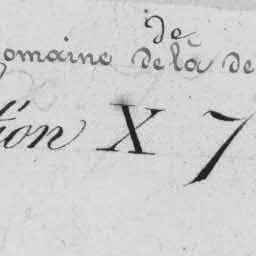 de
omaine de la de
tion X 7